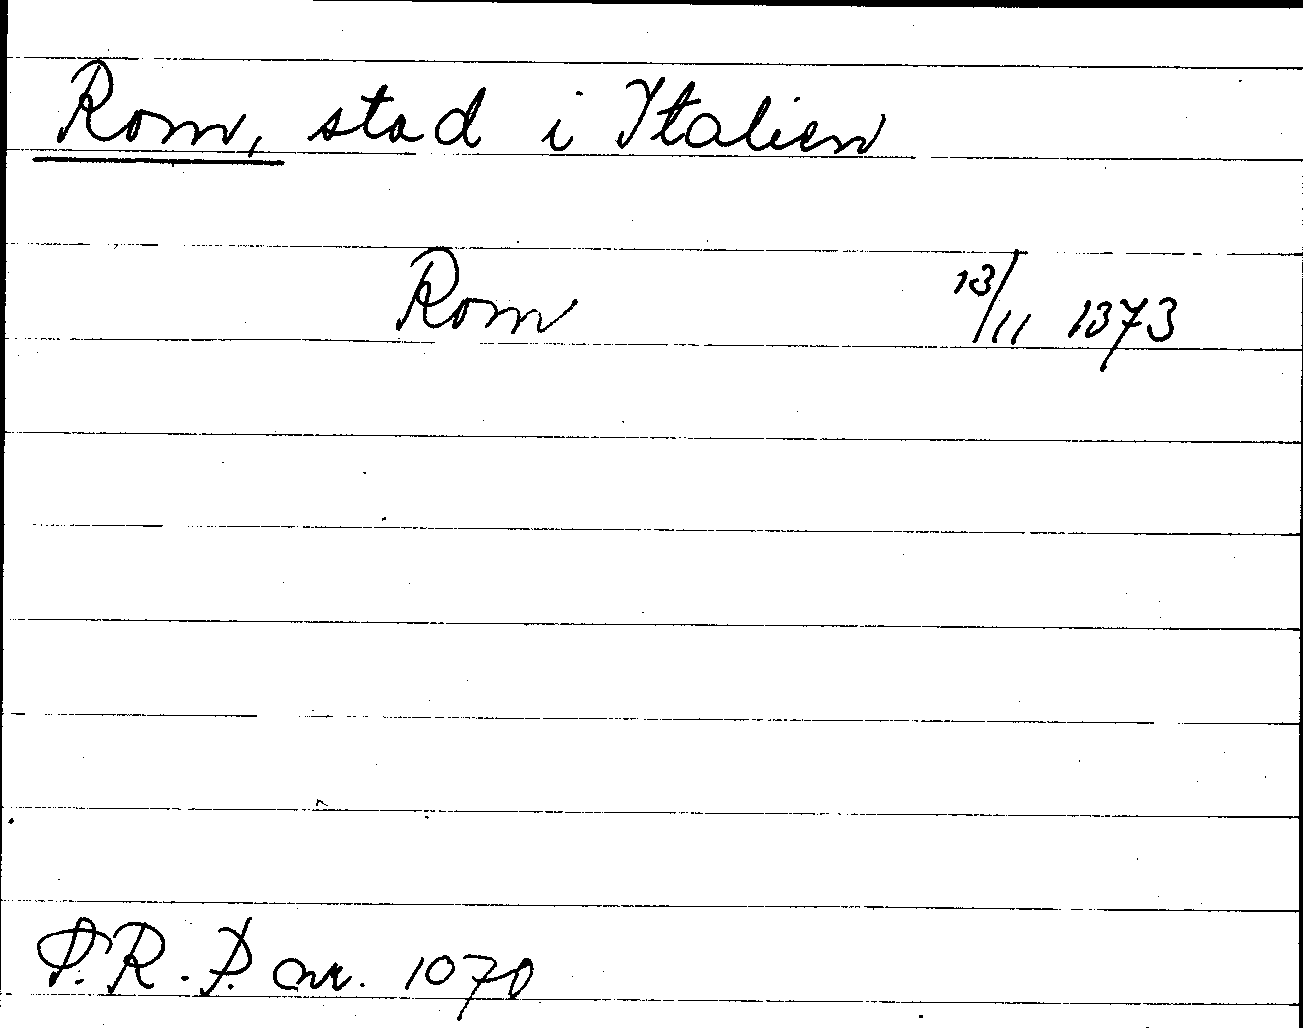 Rom, stad i Italien
Rom 13/11 1373
S.R.P. nr. 1070